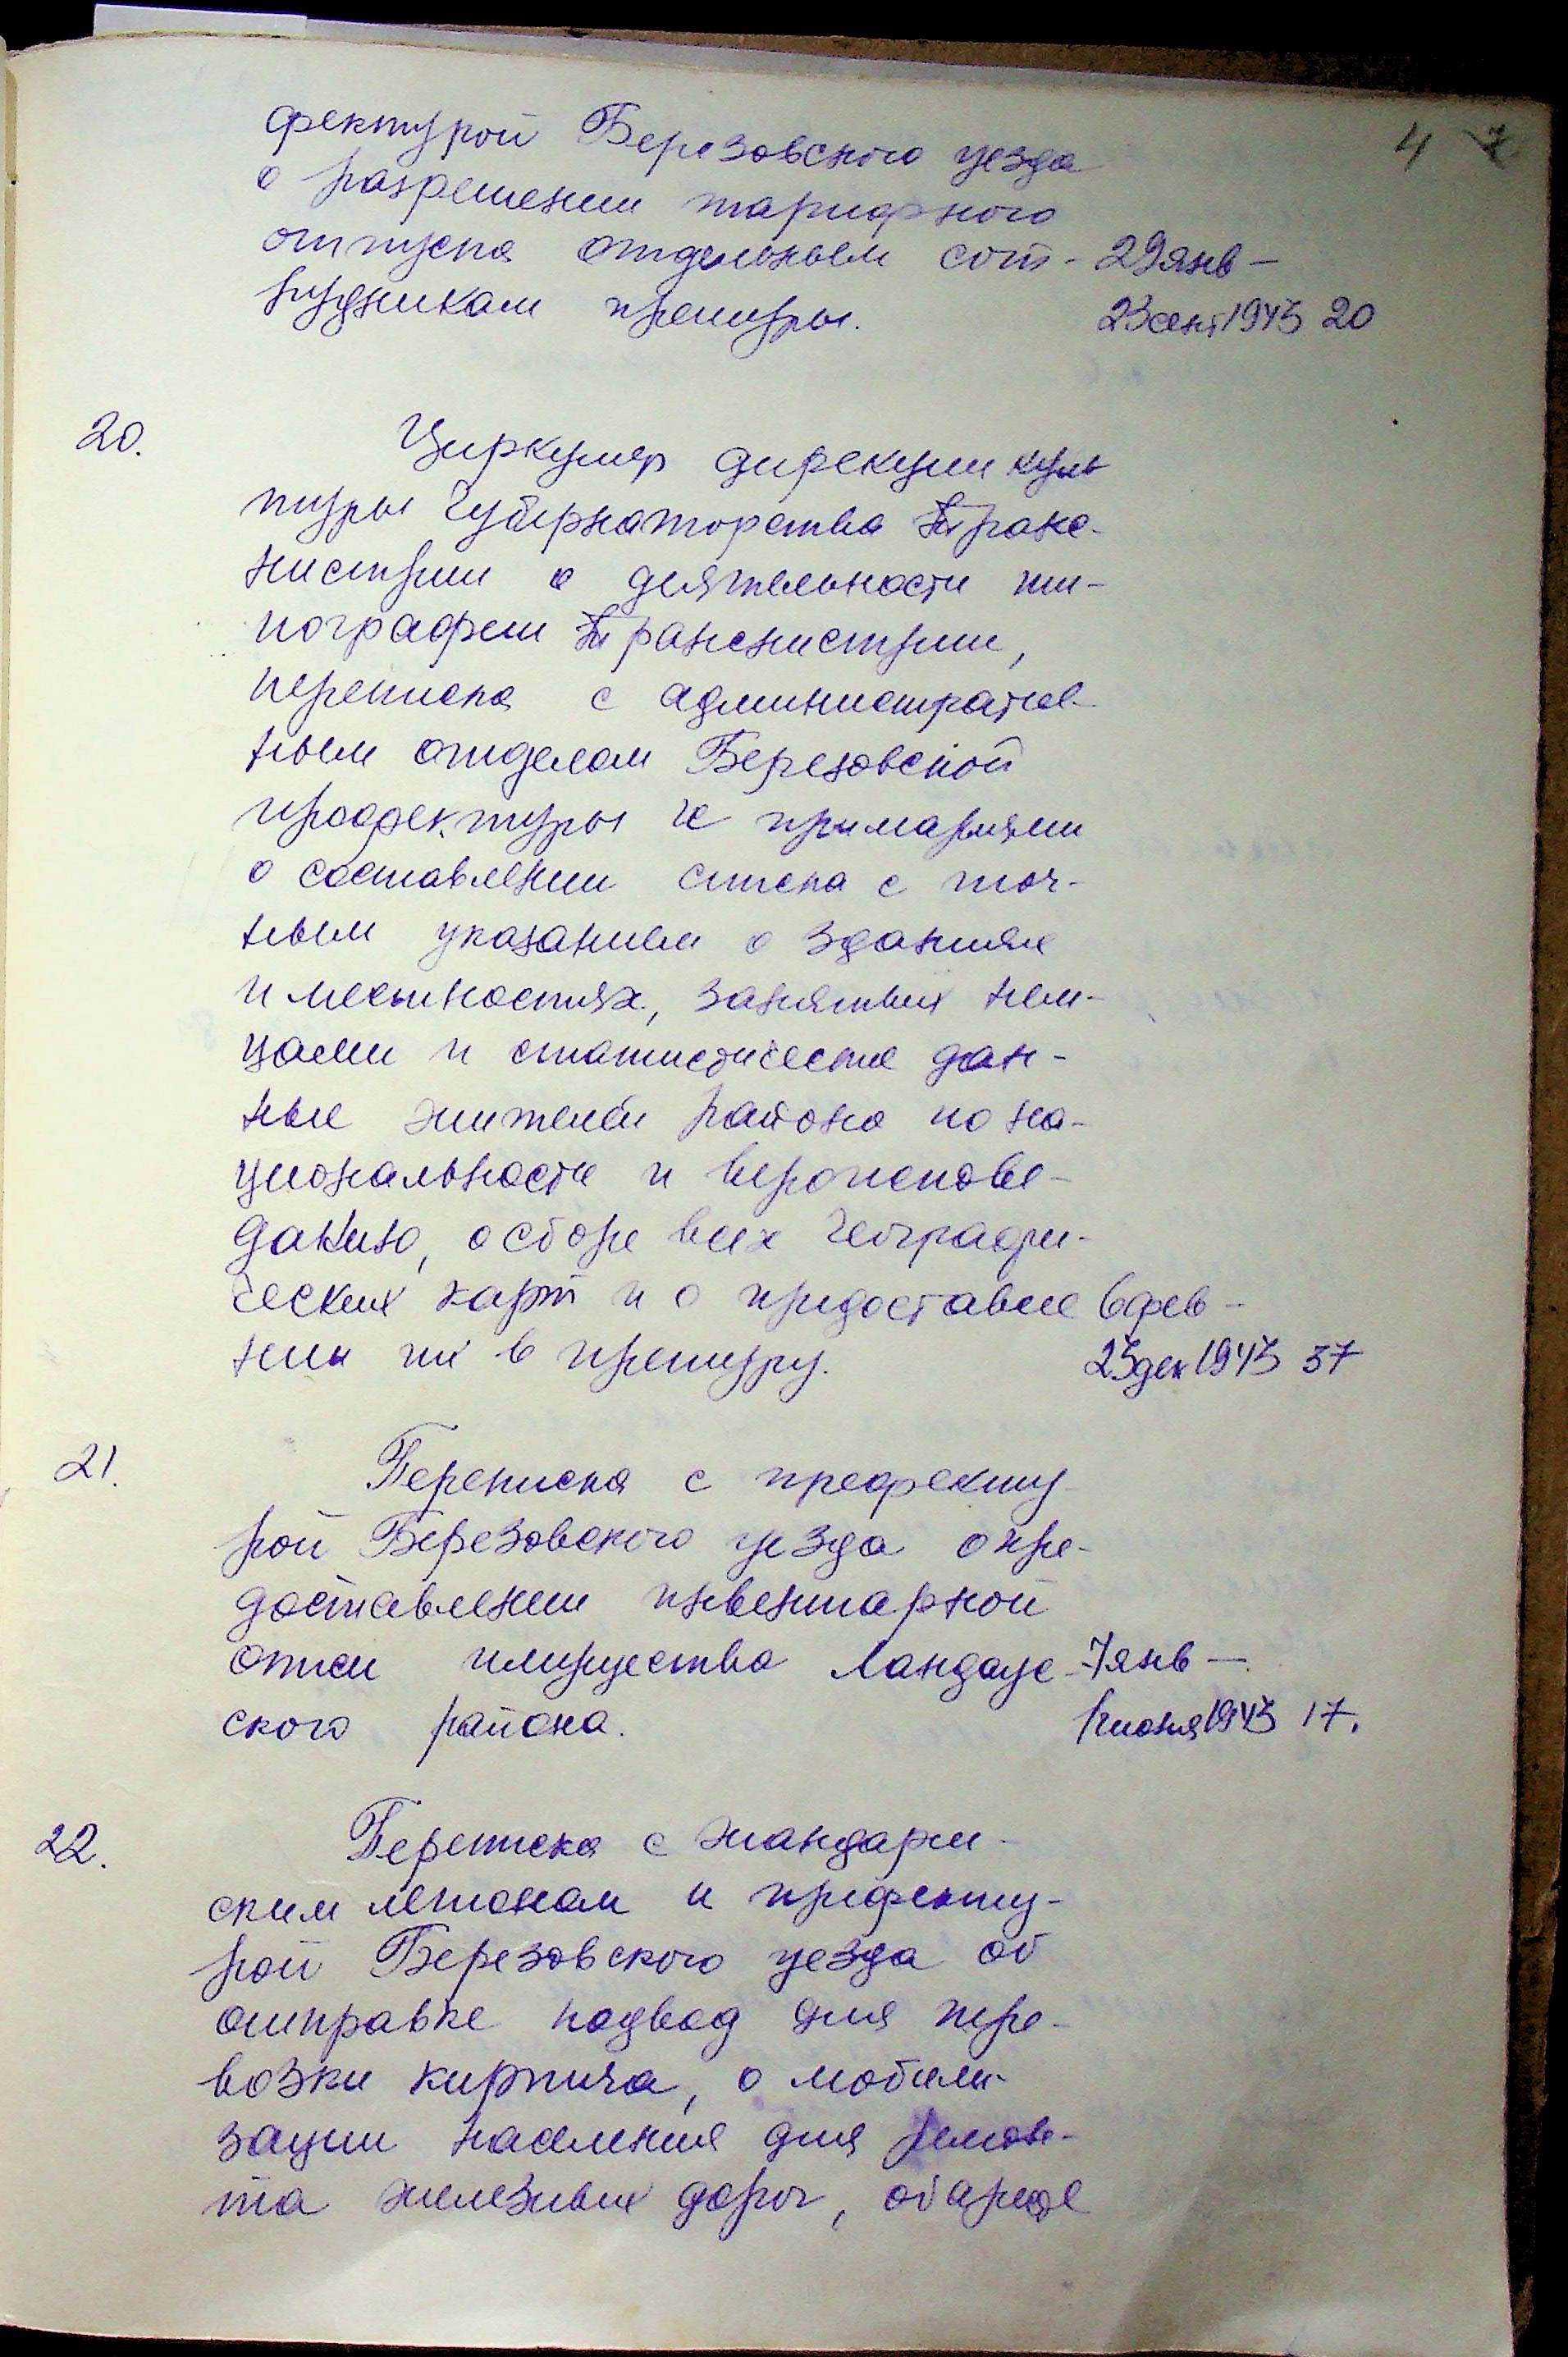 4 7
фектурой Березовского уезда
о разрешении тарифного
отпуска отдельным сот- 29 янв -
рудникам претуры. 23 сент 1943 20
20. Циркуляр дирекции куль
туры губернаторства Транс-
нистрии о деятельности ти-
пографии Транснистрии,
переписка с административ-
ным отделом Березовской
префектуры и примариями
о составлении списка с точ-
ным указанием о зданиях
и местностях, занятых нем-
цами и статистические дан-
ные жителей района по на-
циональности и вероиспове-
данию, о сборе всех географи-
ческих карт и о предоставле 6 фев -
нии их в претуру. 23 дек 1943 37
21. Переписка с префекту
рой Березовского уезда о пре-
доставлении инвентарной
описи имущества Ландаус- 7 янв -
ского района. 1 июня 1943 17.
22. Переписка с жандарм-
ским легионом и префекту-
рой Березовского уезда об
отправке подвод для пере-
возки кирпича, о мобили-
зации населения для
та железных дорог, об аренде